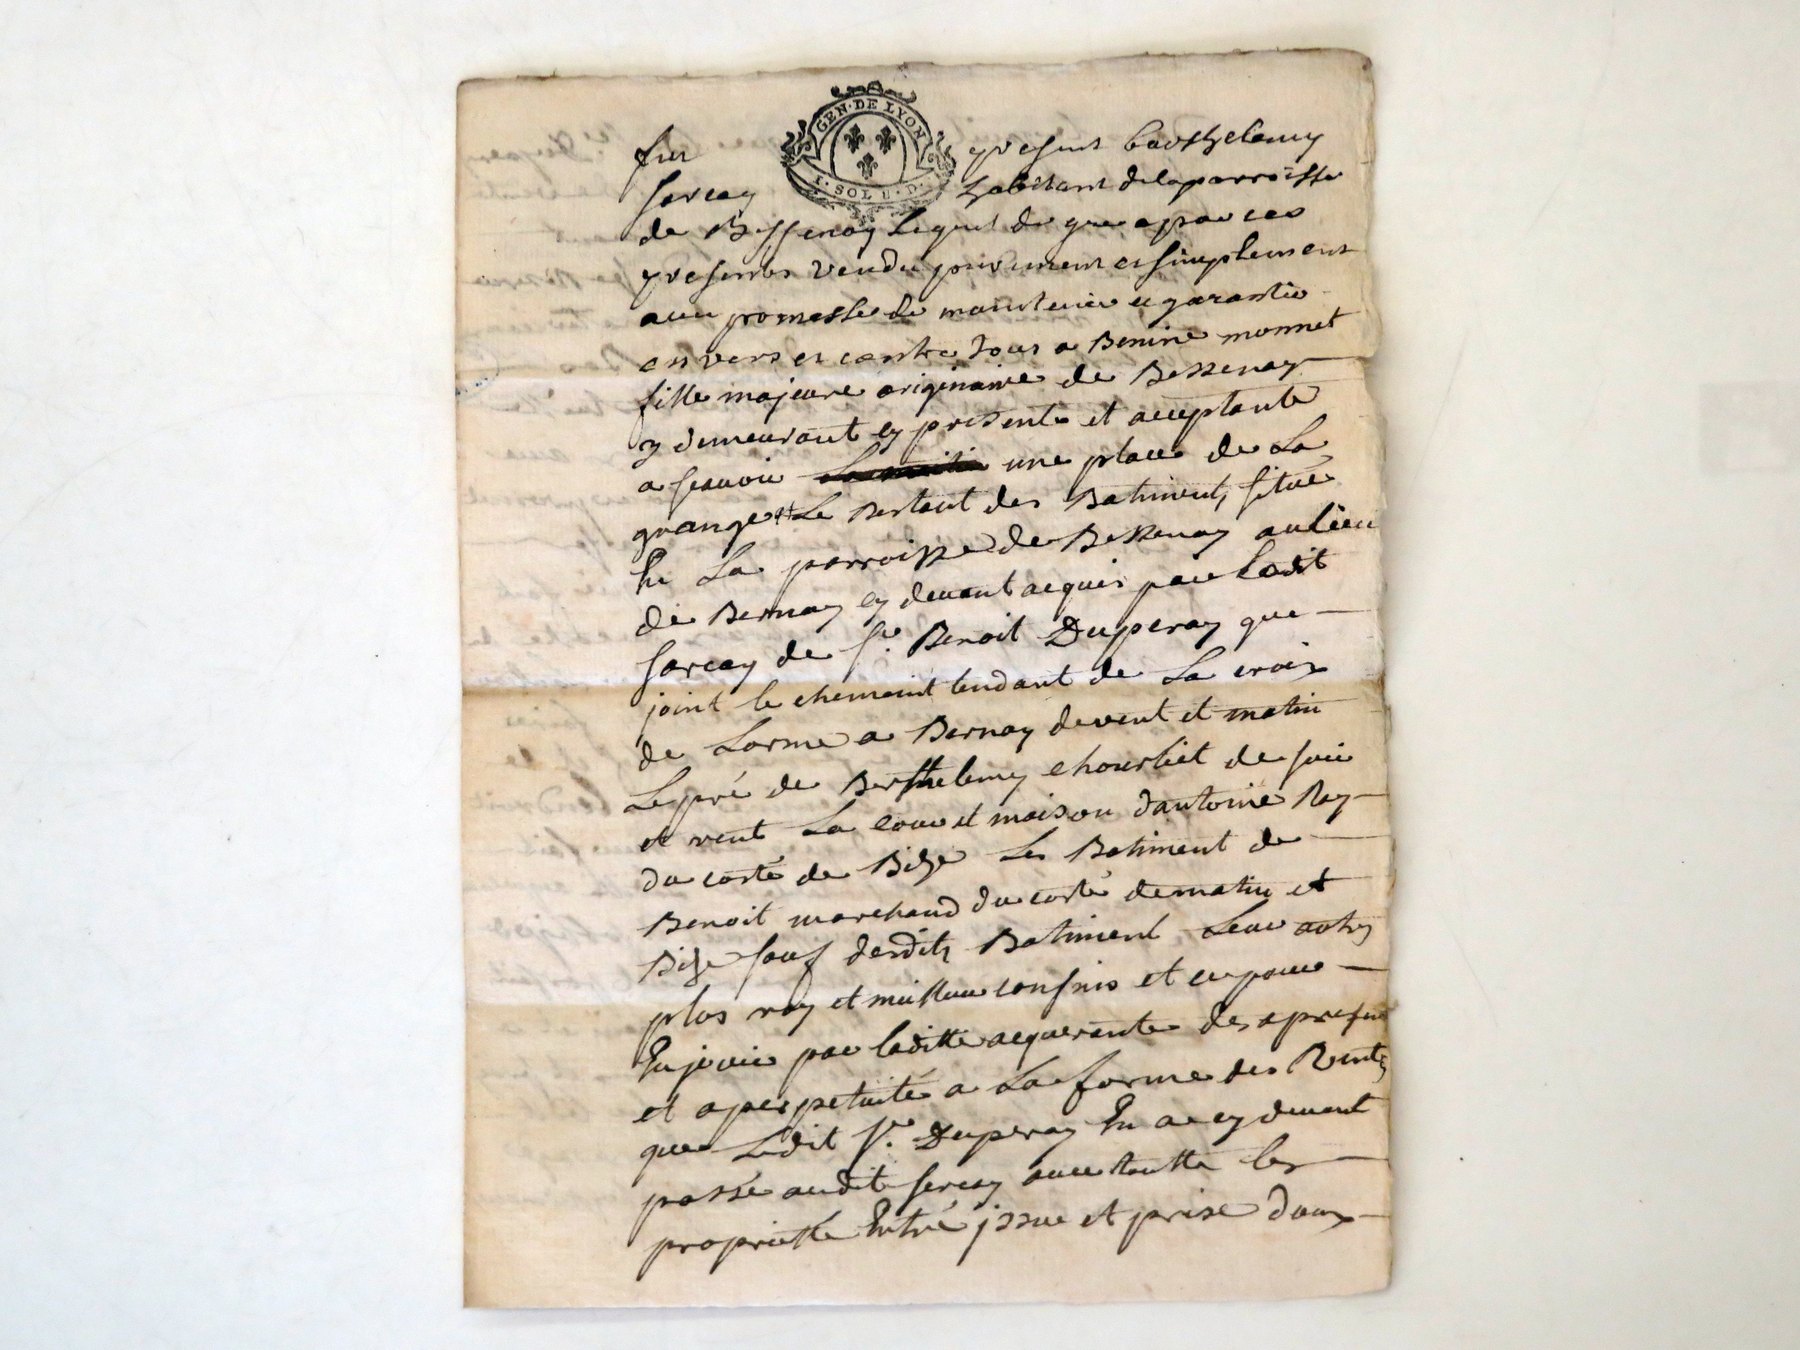 GEN·DE LYON
1·SOL 8·D·
fut present barthelemy
sarcey habitant de la parroisse
de Bessenay lequel de gré a par ces
presentes vendu purement et simplement
avec promesse de maintenir et garantir
envers et contre tous a Benine monnet
fille majeure originaire de Bessenay
y demeurant cy presente et aceptante
a scavoir une place de La
grange et Le Restant des Batiments situé
En La parroisse de Bessenay au lieu
de Bernay cy devant acquis par Ledit
sarcey de Sr. Benoit Duperay que
joint le chemaint tendant de La croix
de Lorme a Bernay devent et matin
Le pré de Berthelemy chourliet de soir
et vent La cour et maison dantoine Rey
du costé de Bize Les Batiment de
Benoit marchand du costé de matin et
Bize sauf desdits Batiment Leur autres
plus vray et meilleur confins et ce pour
En jouir par laditte aquerante des a presant
et a perpetuité a La forme des Ventes
que Ledit Sr. Duperay En a cy devant
passé audit sercey avec toutte les
propriette Entré jssue et prise daux